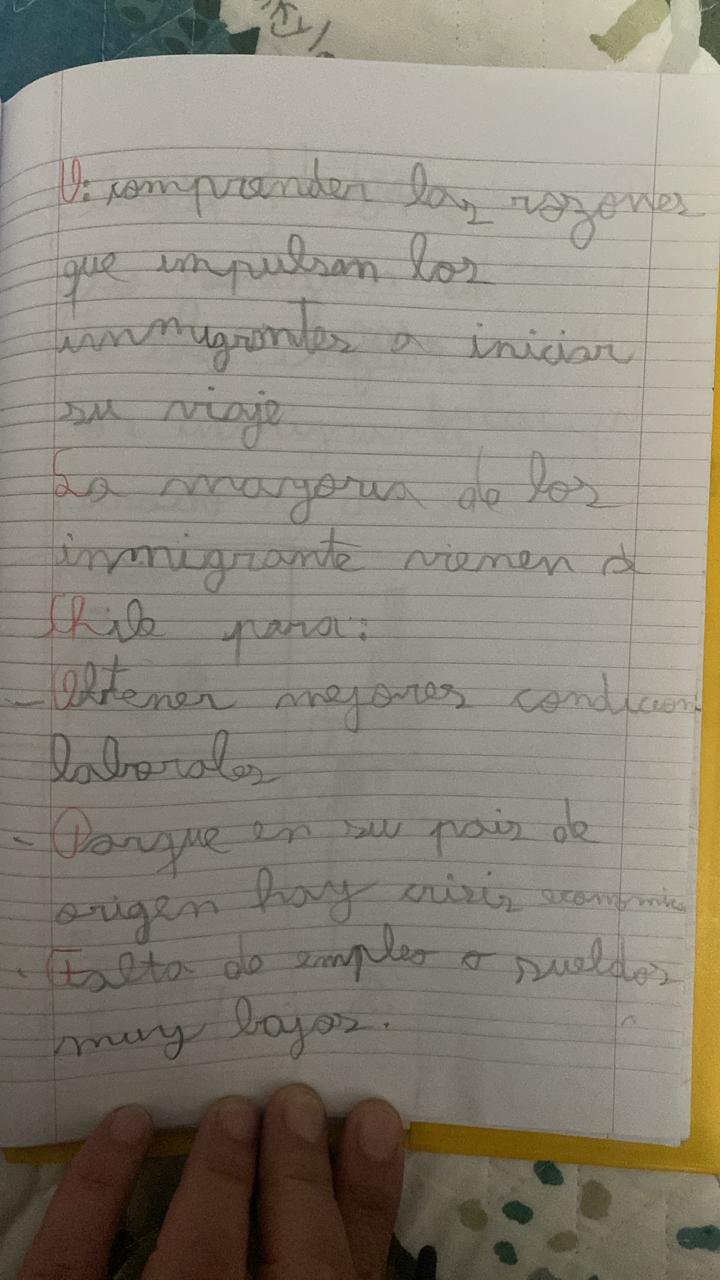 O: comprender las razones
que impulsan los
inmigrantes a iniciar
su viaje
La mayoria de los
inmigrante vienen a
Chile para:
- Obtener mejores condicion
laborales
- Porque en su pais de
origen hay crisis economica
- Falta de empleo o sueldos
muy bajos.